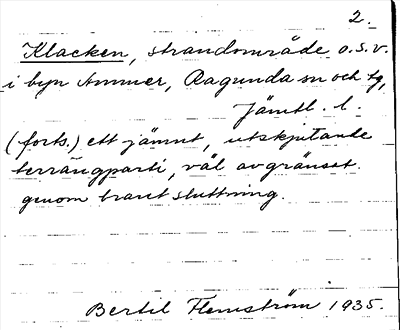 2.
Klacken, strandområde o.s.v.
i byn Ammer, Ragunda sn och tg,
Jämtl. l.
(forts.) ett jämnt, utskjutande
terrängparti, väl avgränsat
genom brant sluttning.
Bertil Flemström 1935.